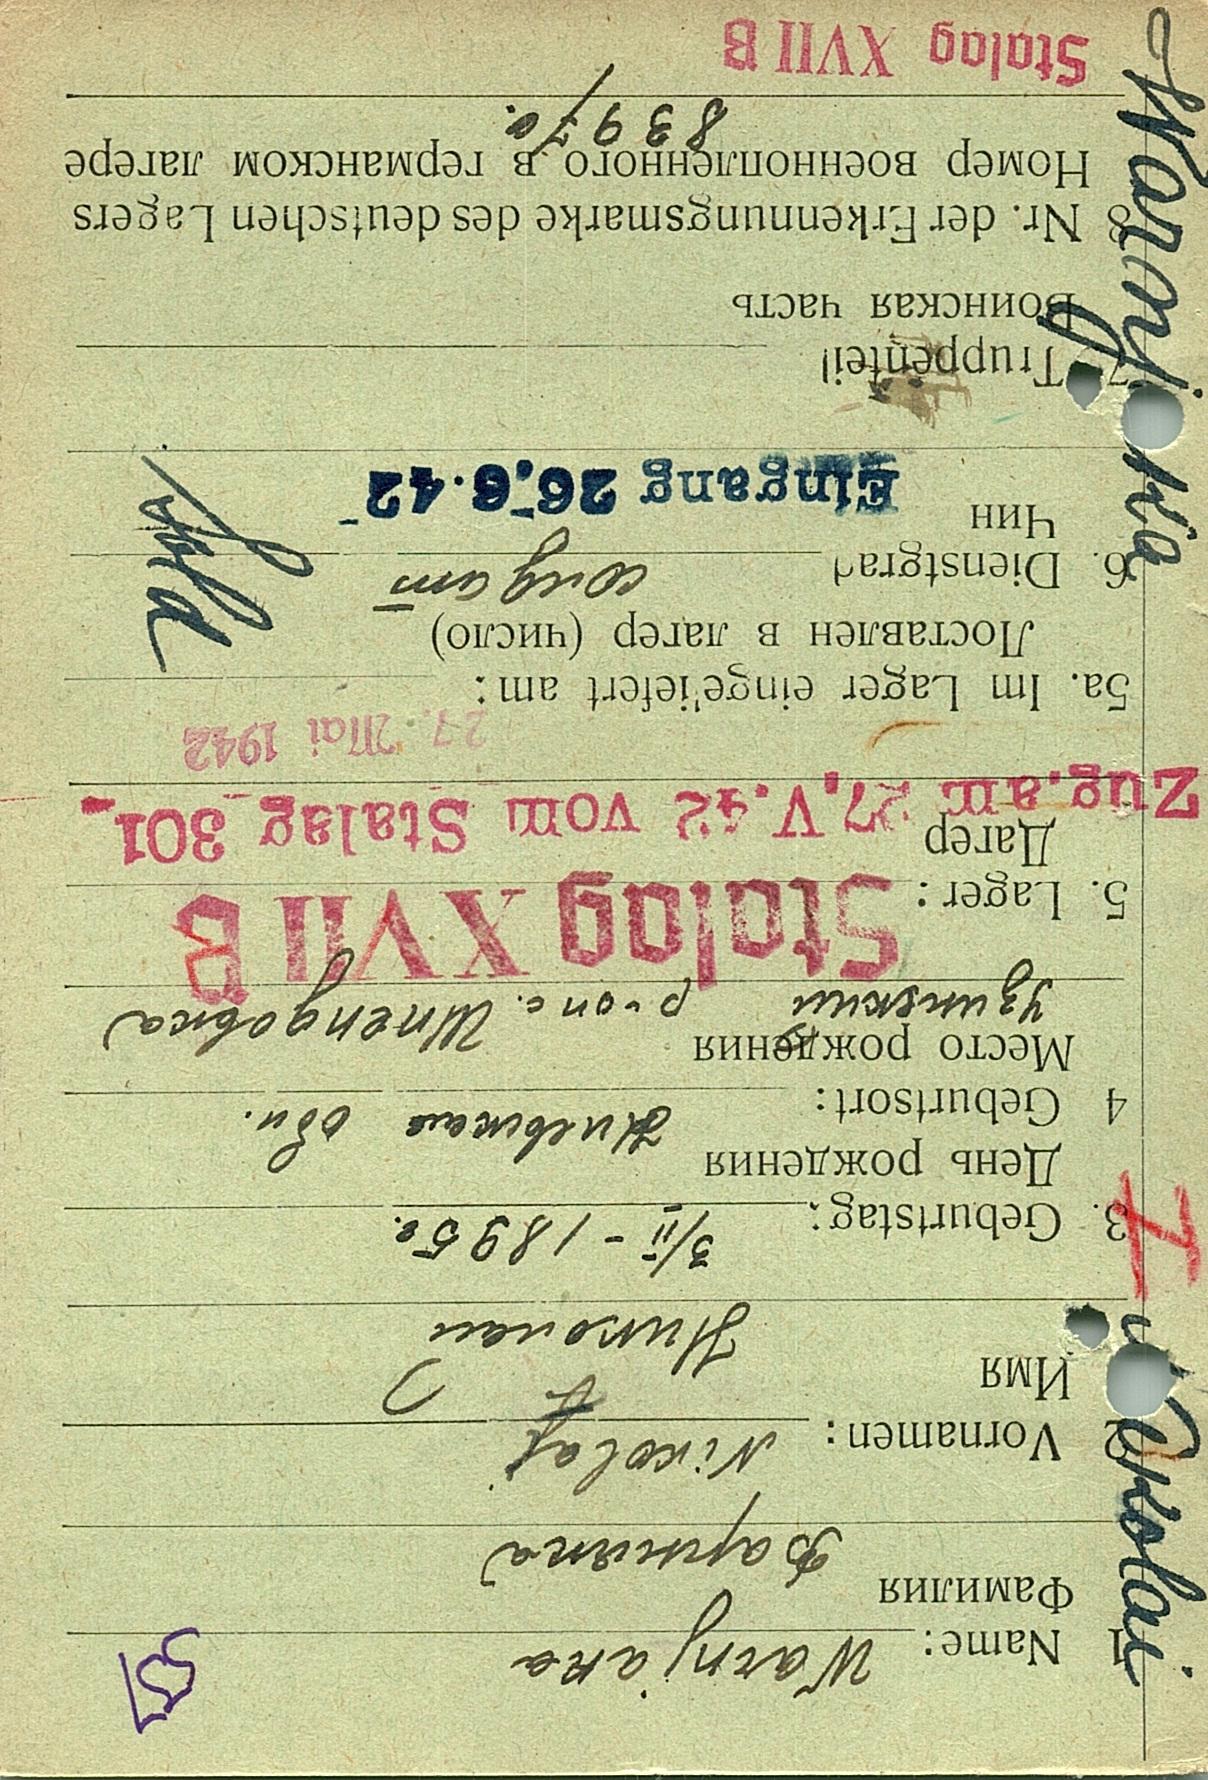 1 Name: Warnjaka
Фамилия Варняка
2 Vornamen: Nikolaj
Имя Николай
3. Geburtstag: 3/II - 1895 г.
День рождения
4 Geburtsort: Киевская обл.
Место рождения
Узинский р-он с. Шпендовка
5. Lager: Stalag XVII B
Лагер
Zug. am 27. V. 42 vom Stalag 301
27. Mai 1942
5a. Im Lager eingeliefert am:
Доставлен в лагер (число)
6. Dienstgrad
Чин
Eingang 26. 6. 42
7. Truppenteil
Воинская часть
8 Nr. der Erkennungsmarke des deutschen Lagers
Номер военнопленного в германском лагере
Stalag XVII B
Nikolai